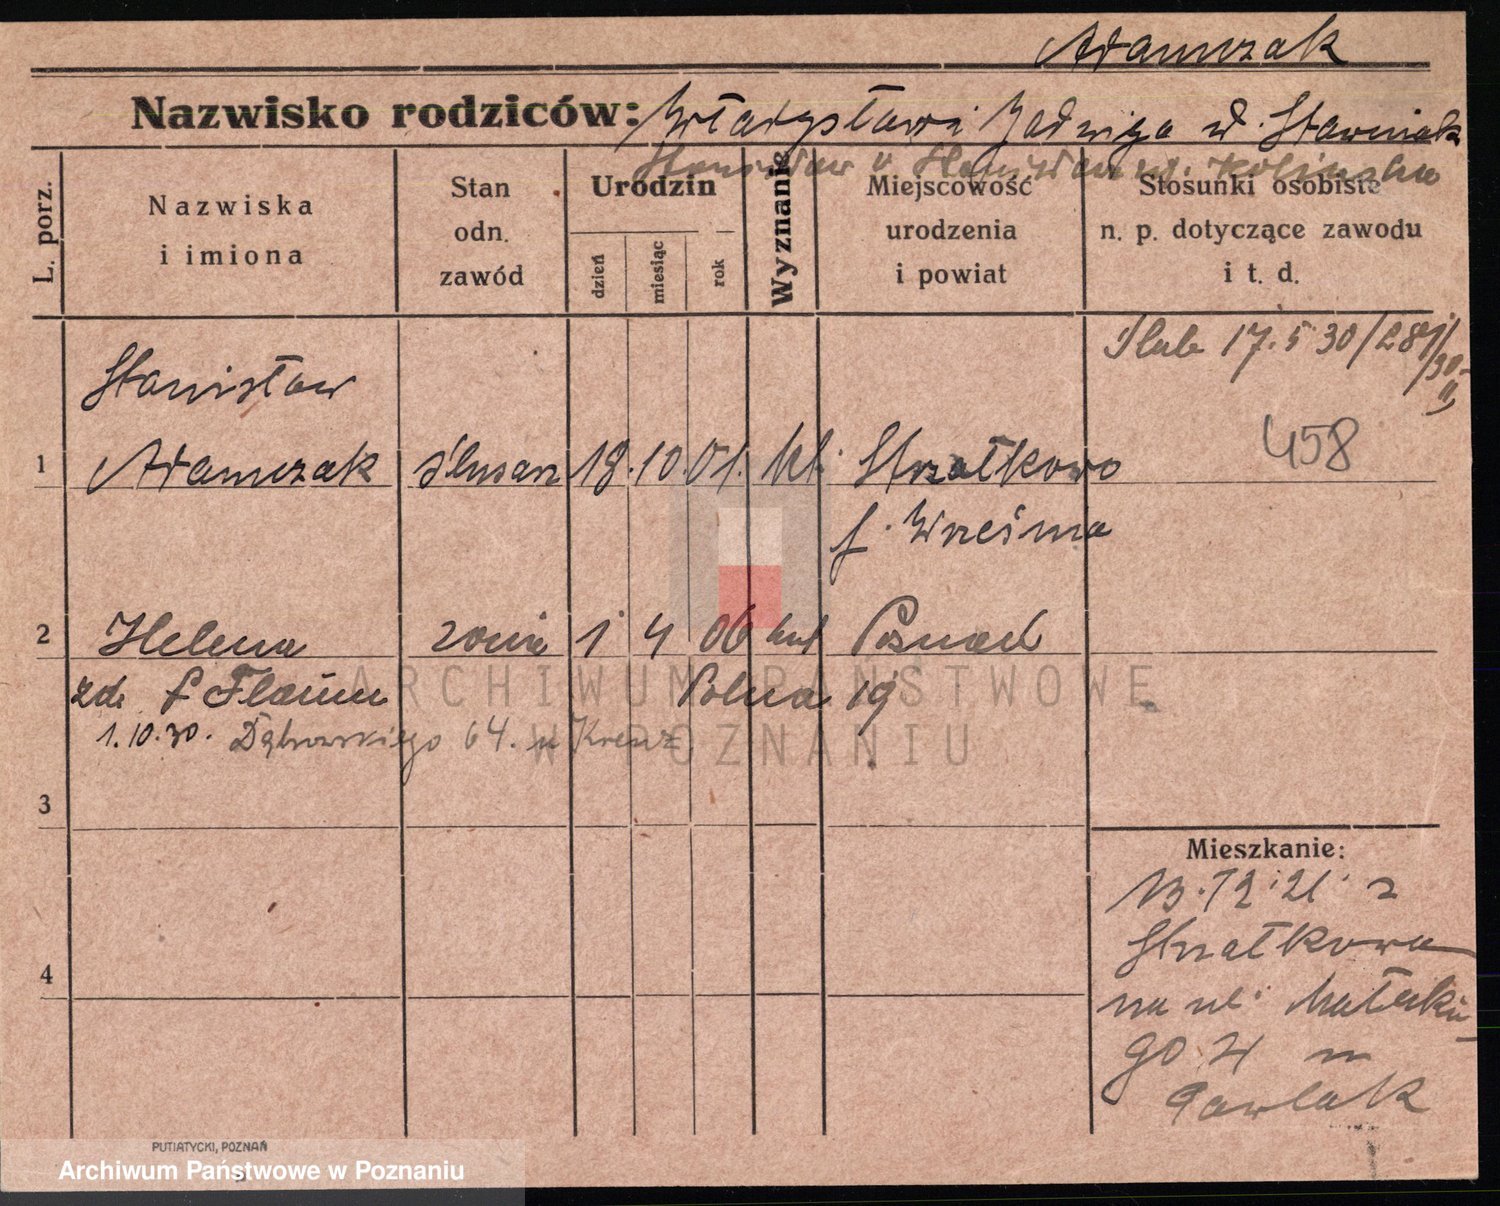 Adamczak
Nazwisko rodziców: Władysław i Jadwiga zd. Stawniak
Stanisław u Stanisława
L. porz.
Nazwiska i imiona
Stan odn. zawód
Urodzin
dzień
miesiąc
rok
Wyznanie
Miejscowość urodzenia i powiat
Stosunki osobiste n. p. dotyczące zawodu i t. d.
Ślub 17. 5 30
458
Stanisław
1 Adamczak ślusarz 18. 10. 01. kt. Strzałkowo
p. Września
2 Helena żona 1 4 06 kat Poznań
zd. Polna 19
1.10.30. Dąbrowskiego 64. u Kreuz
3
4
Mieszkanie:
13. 12. 21. z
Strzałkowa
na ul. Małeckie-
go 21 m
Pawlak
PUTIATYCKI, POZNAŃ
ARCHIWUM PAŃSTWOWE
W POZNANIU
Archiwum Państwowe w Poznaniu